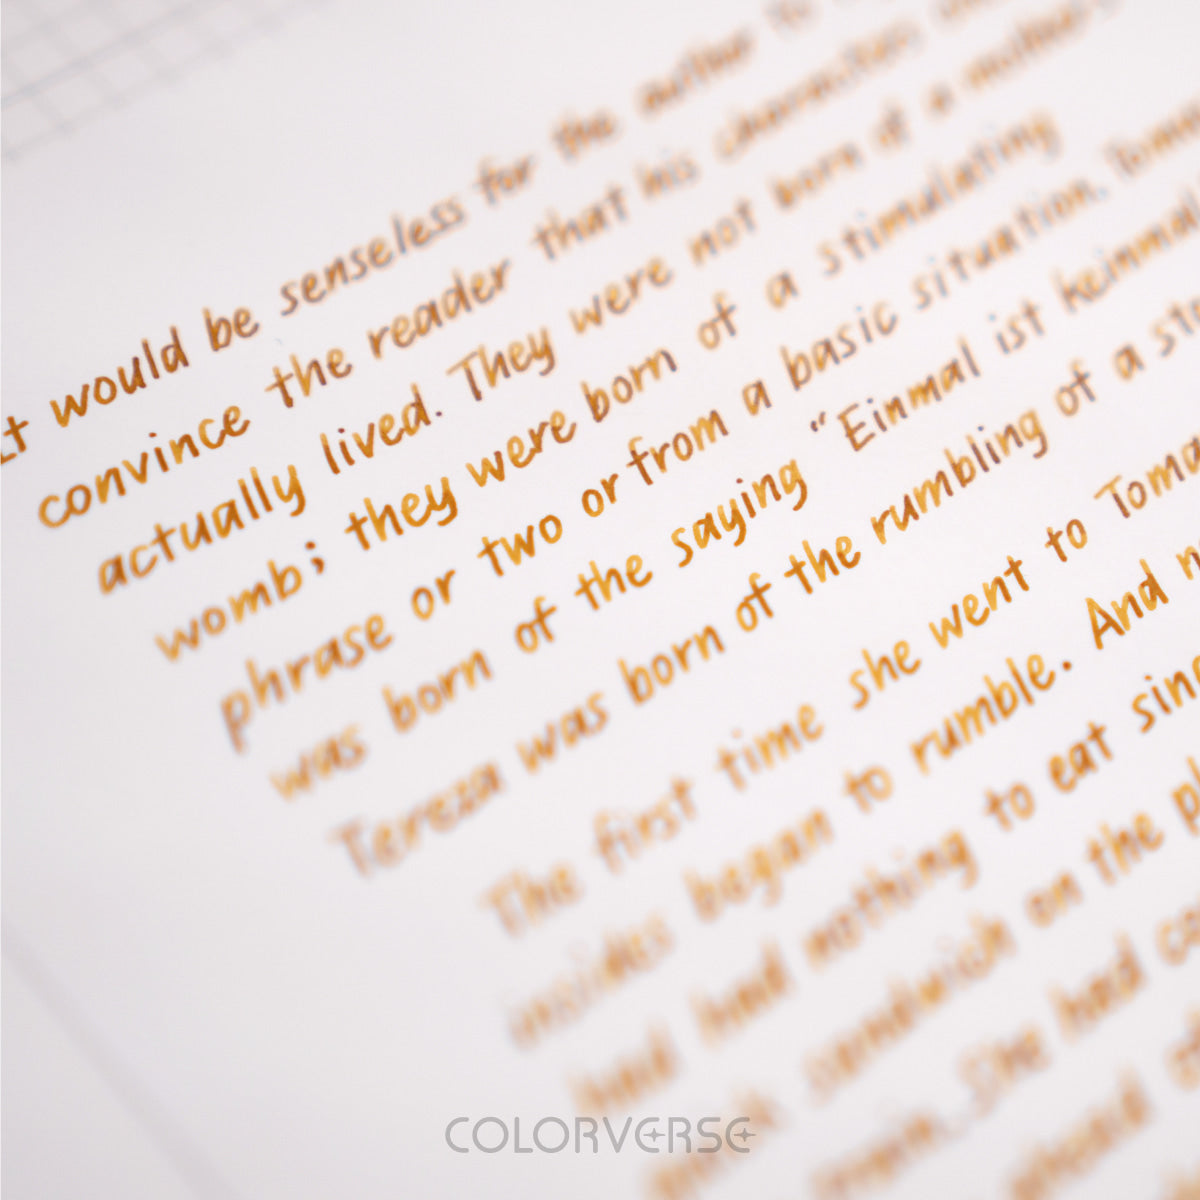 It would be senseless for the author to
convince the reader that his characters
actually lived. They were not born of a mother's
womb; they were born of a stimulating
phrase or two or from a basic situation. Tomas
was born of the saying "Einmal ist keinmal
Tereza was born of the rumbling of a
The first time she went to
insides began to rumble. And
had had nothing to eat
sandwich on the
She had
COLORVERSE